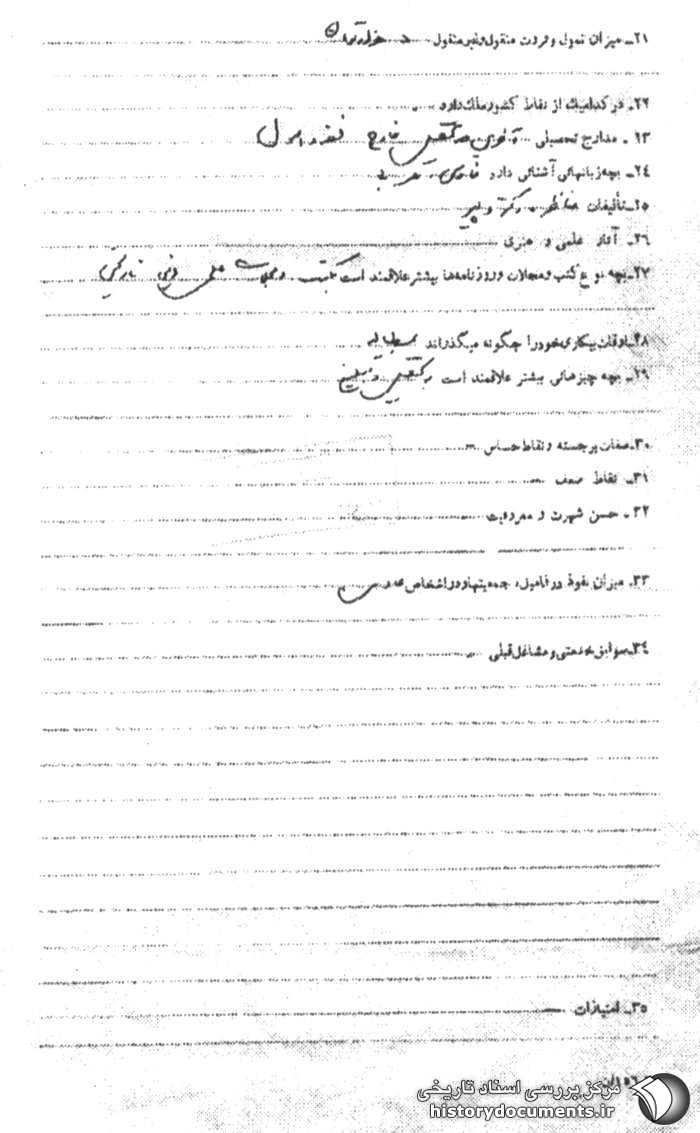 ۲۱ـ میزان تمول و ثروت منقول و غیر منقول
۲۲ـ در کدامیک از نقاط کشور ملک دارد
۲۳ـ مدارج تحصیلی خارج فقه و اصول
۲۴ـ بچه زبانهائی آشنائی دارد فارسی عربی
۲۵ـ تألیفات مناظره دکتر و پیر
۲۶ـ آثار علمی و هنری
۲۷ـ بچه نوع کتب و مجلات و روزنامه‌ها بیشتر علاقمند است کتب و مجلات علمی دینی تاریخی
۲۸ـ اوقات بیکاری خود را چگونه میگذراند مطالعه
۲۹ـ بچه چیزهائی بیشتر علاقمند است تحصیل و تبلیغ
۳۰ـ صفات برجسته و نقاط حساس
۳۱ـ نقاط ضعف
۳۲ـ حسن شهرت و معروفیت
۳۳ـ میزان نفوذ در فامیل، جمعیتها و در اشخاص
۳۴ـ سوابق خدمتی و مشاغل قبلی
۳۵ـ امتیازات
مرکز بررسی اسناد تاریخی
historydocuments.ir